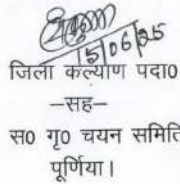 15/06/25
जिला कल्याण पदा०
–सह–
स० गृ० चयन समिति
पूर्णिया।